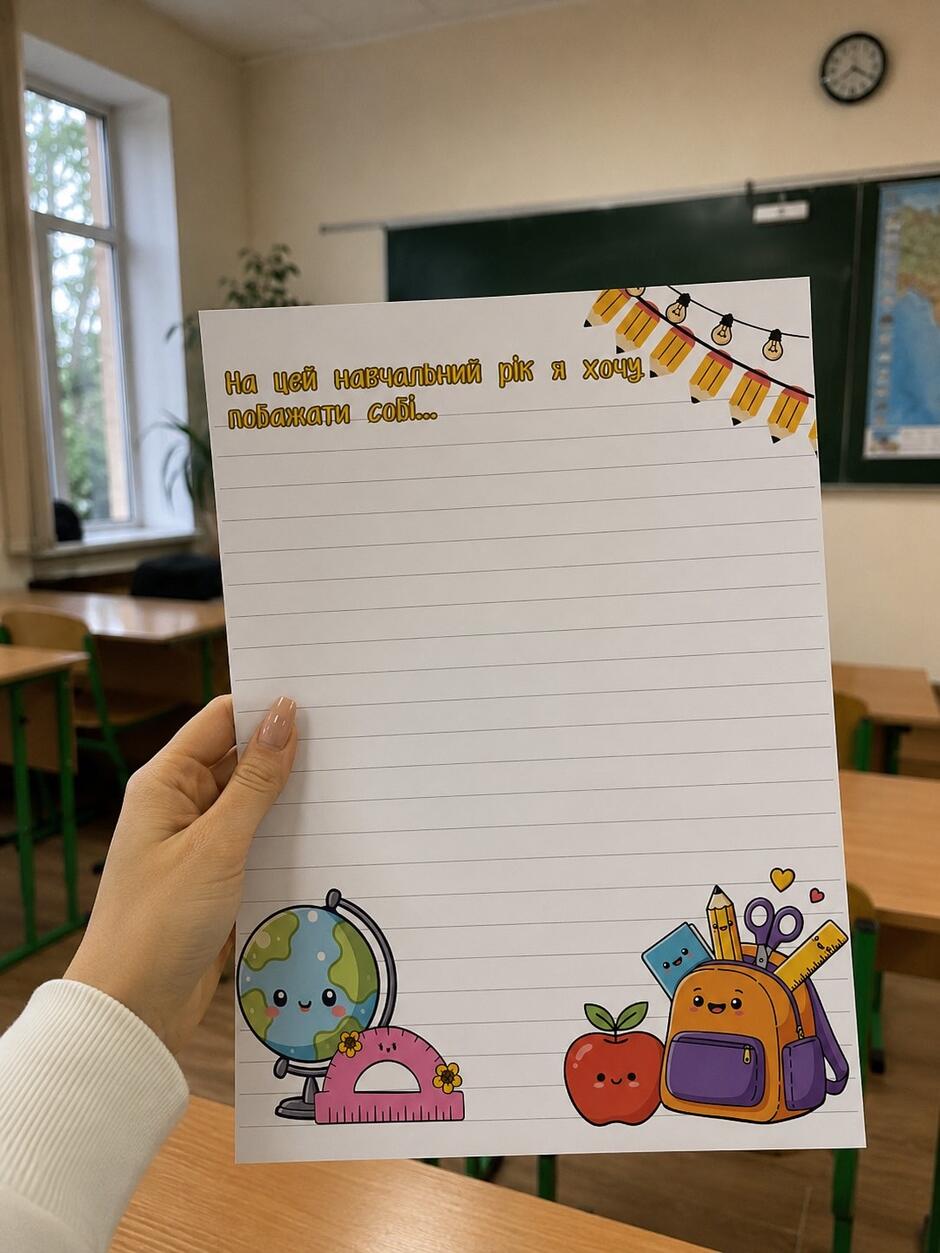 На цей навчальний рік я хочу
побажати собі...